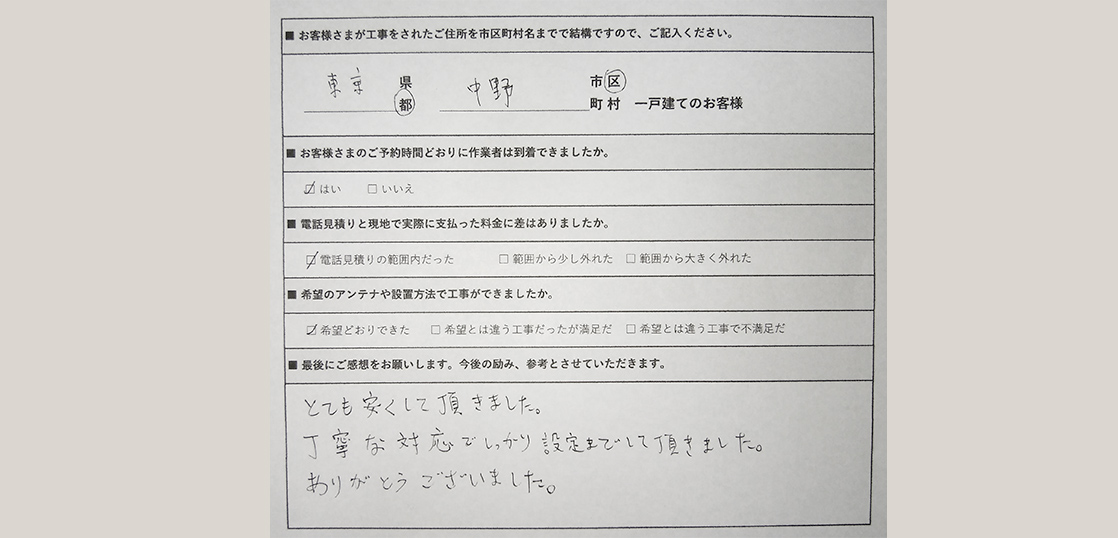 ■ お客様さまが工事をされたご住所を市区町村名までで結構ですので、ご記入ください。
東京 県 中野 市 区
都 町 村 一戸建てのお客様
■ お客様さまのご予約時間どおりに作業者は到着できましたか。
☑ はい □ いいえ
■ 電話見積りと現地で実際に支払った料金に差はありましたか。
☑ 電話見積りの範囲内だった □ 範囲から少し外れた □ 範囲から大きく外れた
■ 希望のアンテナや設置方法で工事ができましたか。
☑ 希望どおりできた □ 希望とは違う工事だったが満足だ □ 希望とは違う工事で不満足だ
■ 最後にご感想をお願いします。今後の励み、参考とさせていただきます。
とても安くして頂きました。
丁寧な対応でしっかり設定までして頂きました。
ありがとうございました。